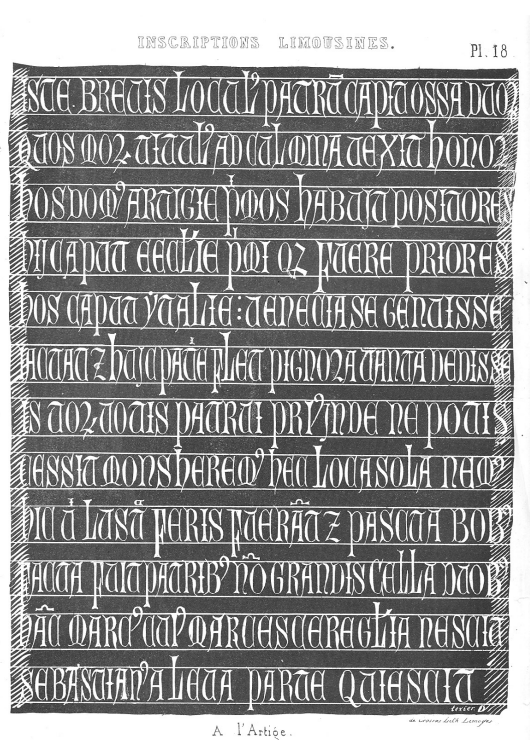 INSCRIPTIONS LIMOUSINES.
Pl. 18
ISTE. BREVIS LOCUL' PATRŪ CAPIT OSSA DUOꝜ
QUOS MOꝜ TITUL' AD CULMINA VEXIT HONOꝜ
HOS DOM' ARTIGIE PMOS HABUIT POSITORES
HIJ CAPUT ECCLIE PMI QZ FUERE PRIORES
HOS CAPUT YTALIE : VENECIA SE GENUISSE
IACTAT Z HUIC PATIE FLET PIGNORA TANTA DEDISSE
IS TOT PATRUI NE POTIS
CESSIT MONS HEREM' HEC LOCA SOLA NEM'
HIC LUST FERIS FUERĀT Z PASCUA BOB'
FACTA FUIT PATRIB' NŌ GRANDIS CELLA DUOB'
HĀC MARC' MARCESCERE NESCIT
SEBASTIAN' A LEVA PARTE QUIESCIT
texier. D
A l'Artige.